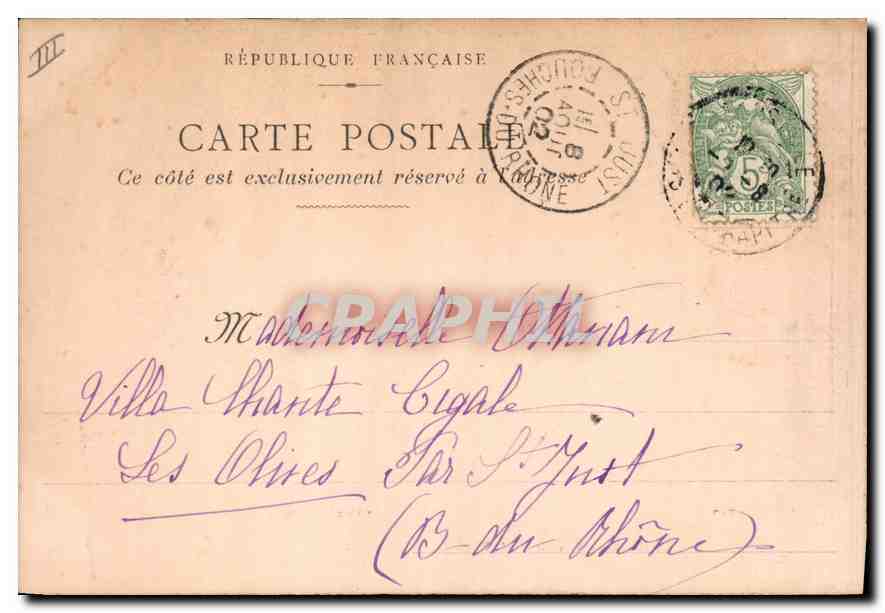 III
RÉPUBLIQUE FRANÇAISE
CARTE POSTALE
Ce côté est exclusivement réservé à l'adresse
ST JUST
BOUCHES-DU-RHÔNE
8
AOUT
02
5
POSTES
CAPIT
CRAPHIL
Mademoiselle
Villa Chante Cigale
Les Olives Par St Just
(B-du Rhône)